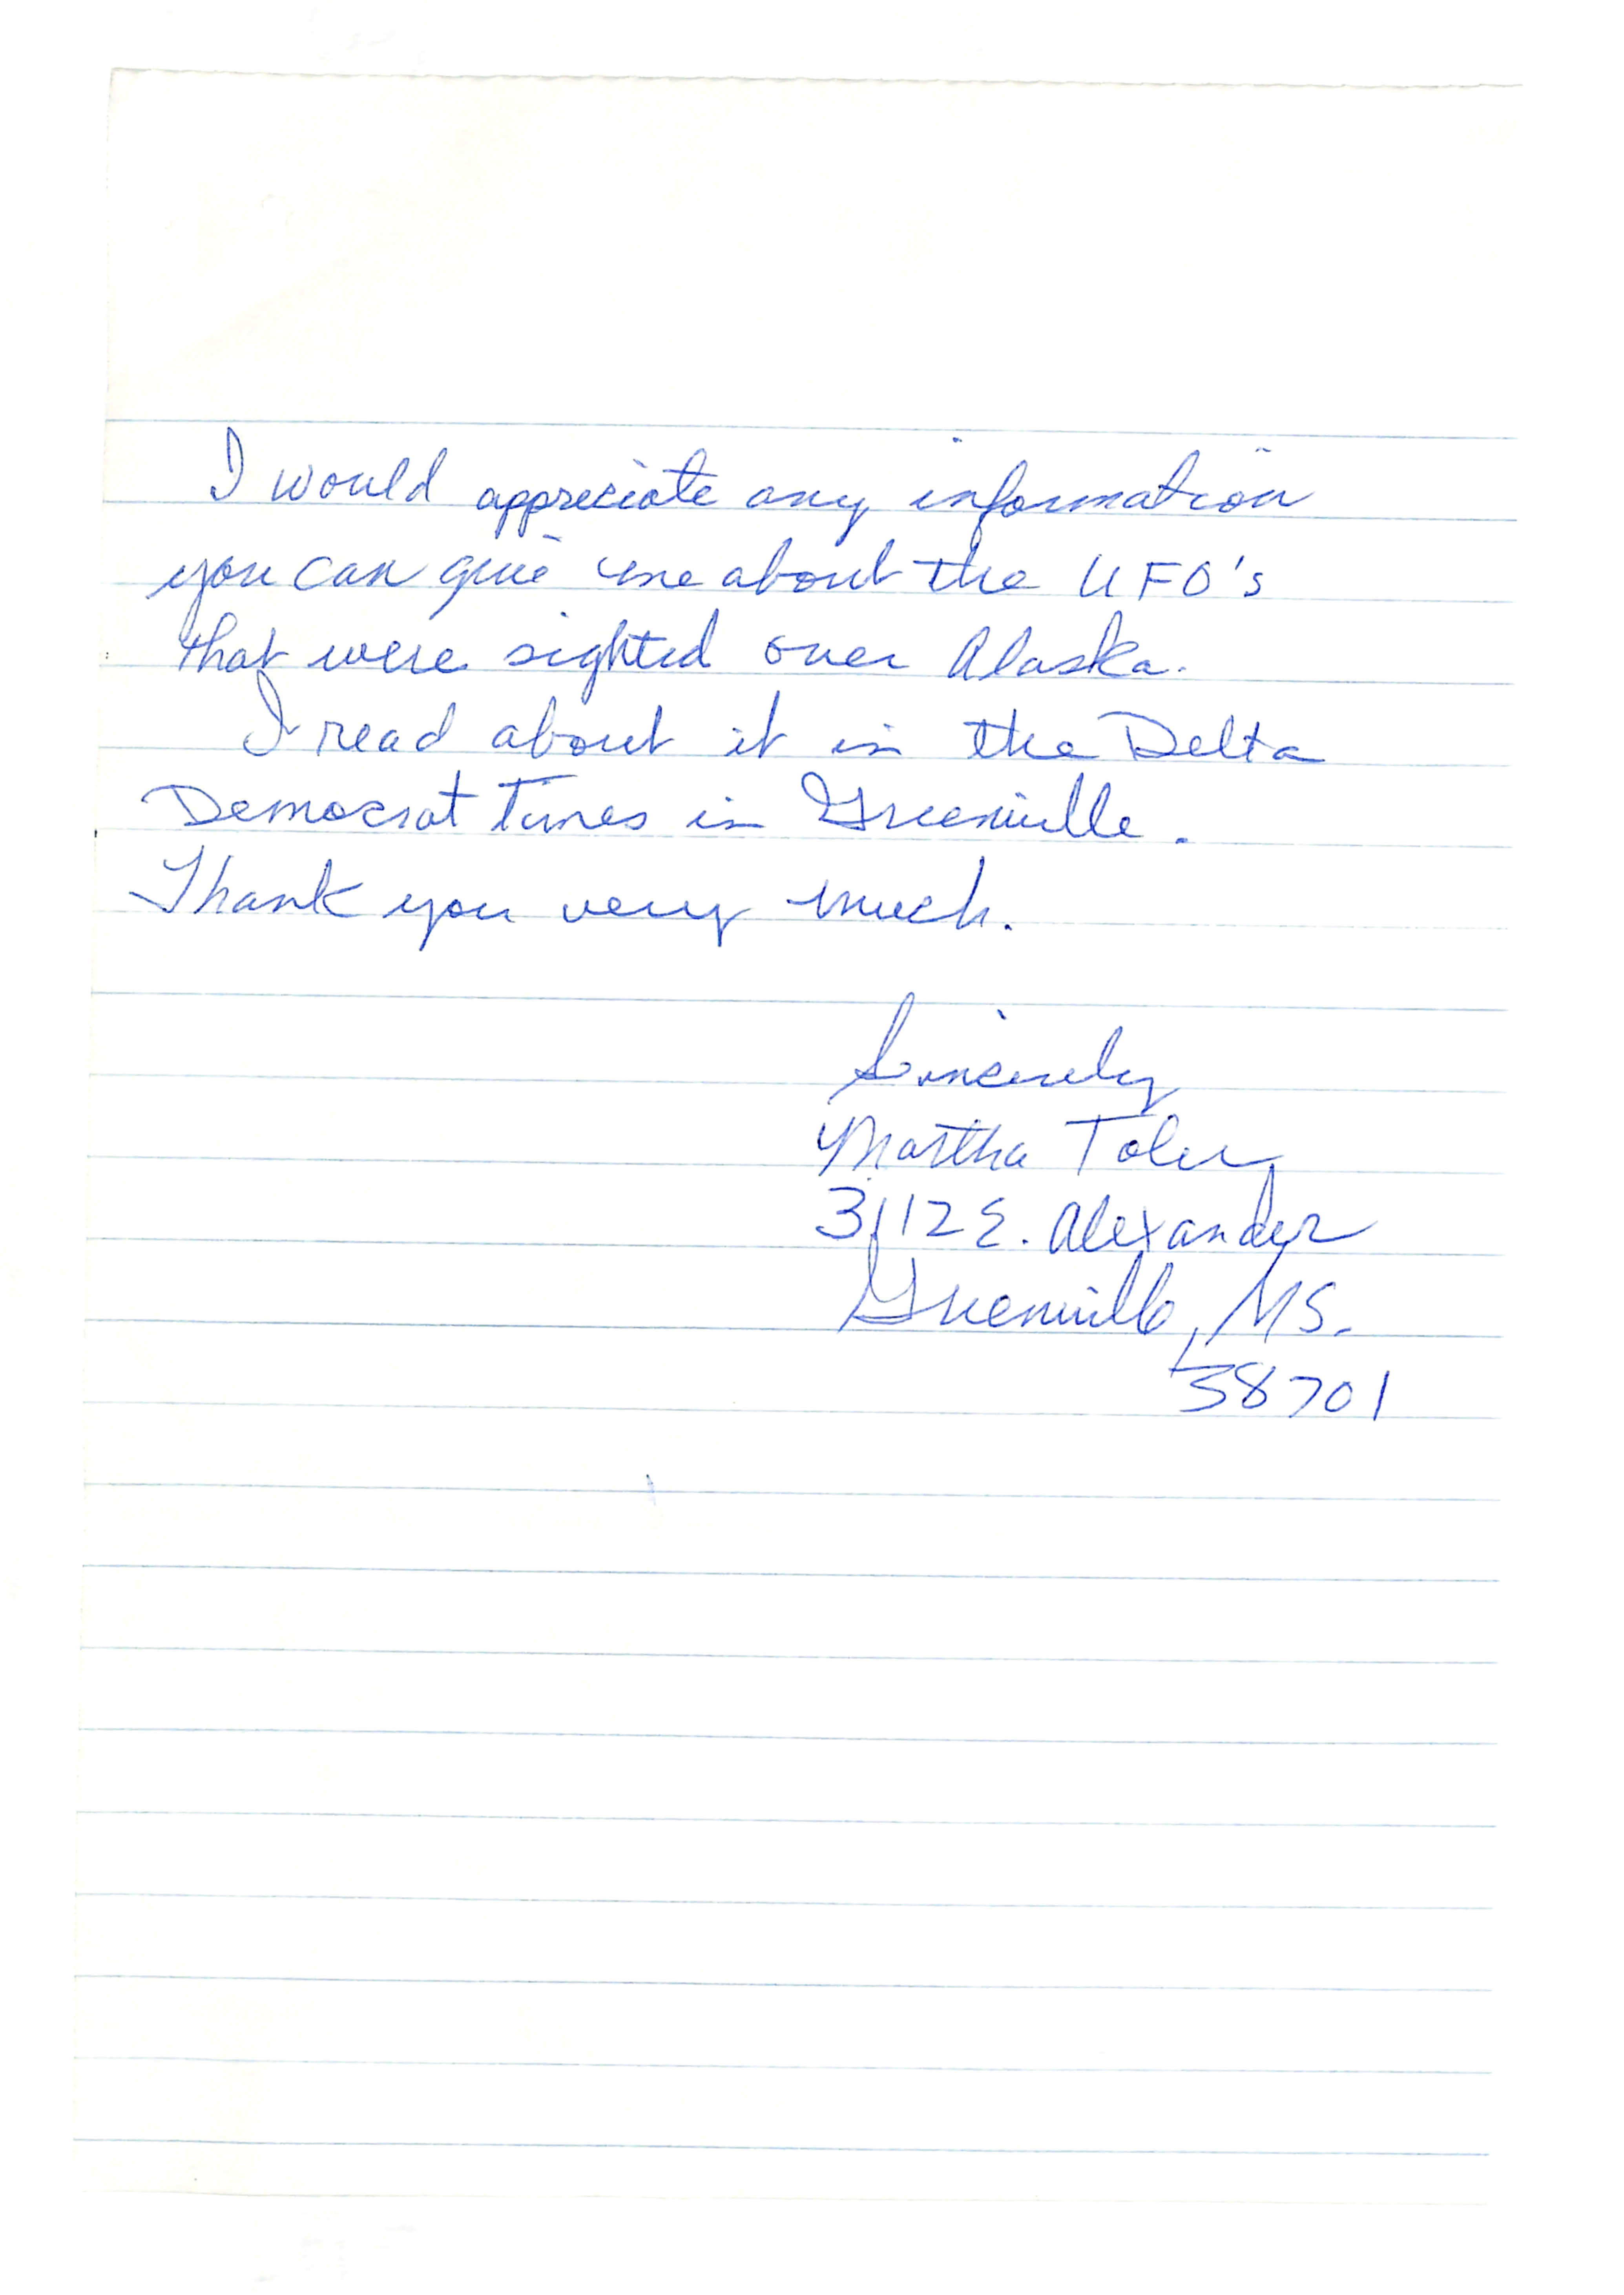 I would appreciate any information
you can give me about the UFO's
that were sighted over Alaska.
I read about it in the Delta
Democrat Times in Greenville.
Thank you very much.
Sincerely
Martha Toler
3112 E. Alexander
Greenville, MS.
38701